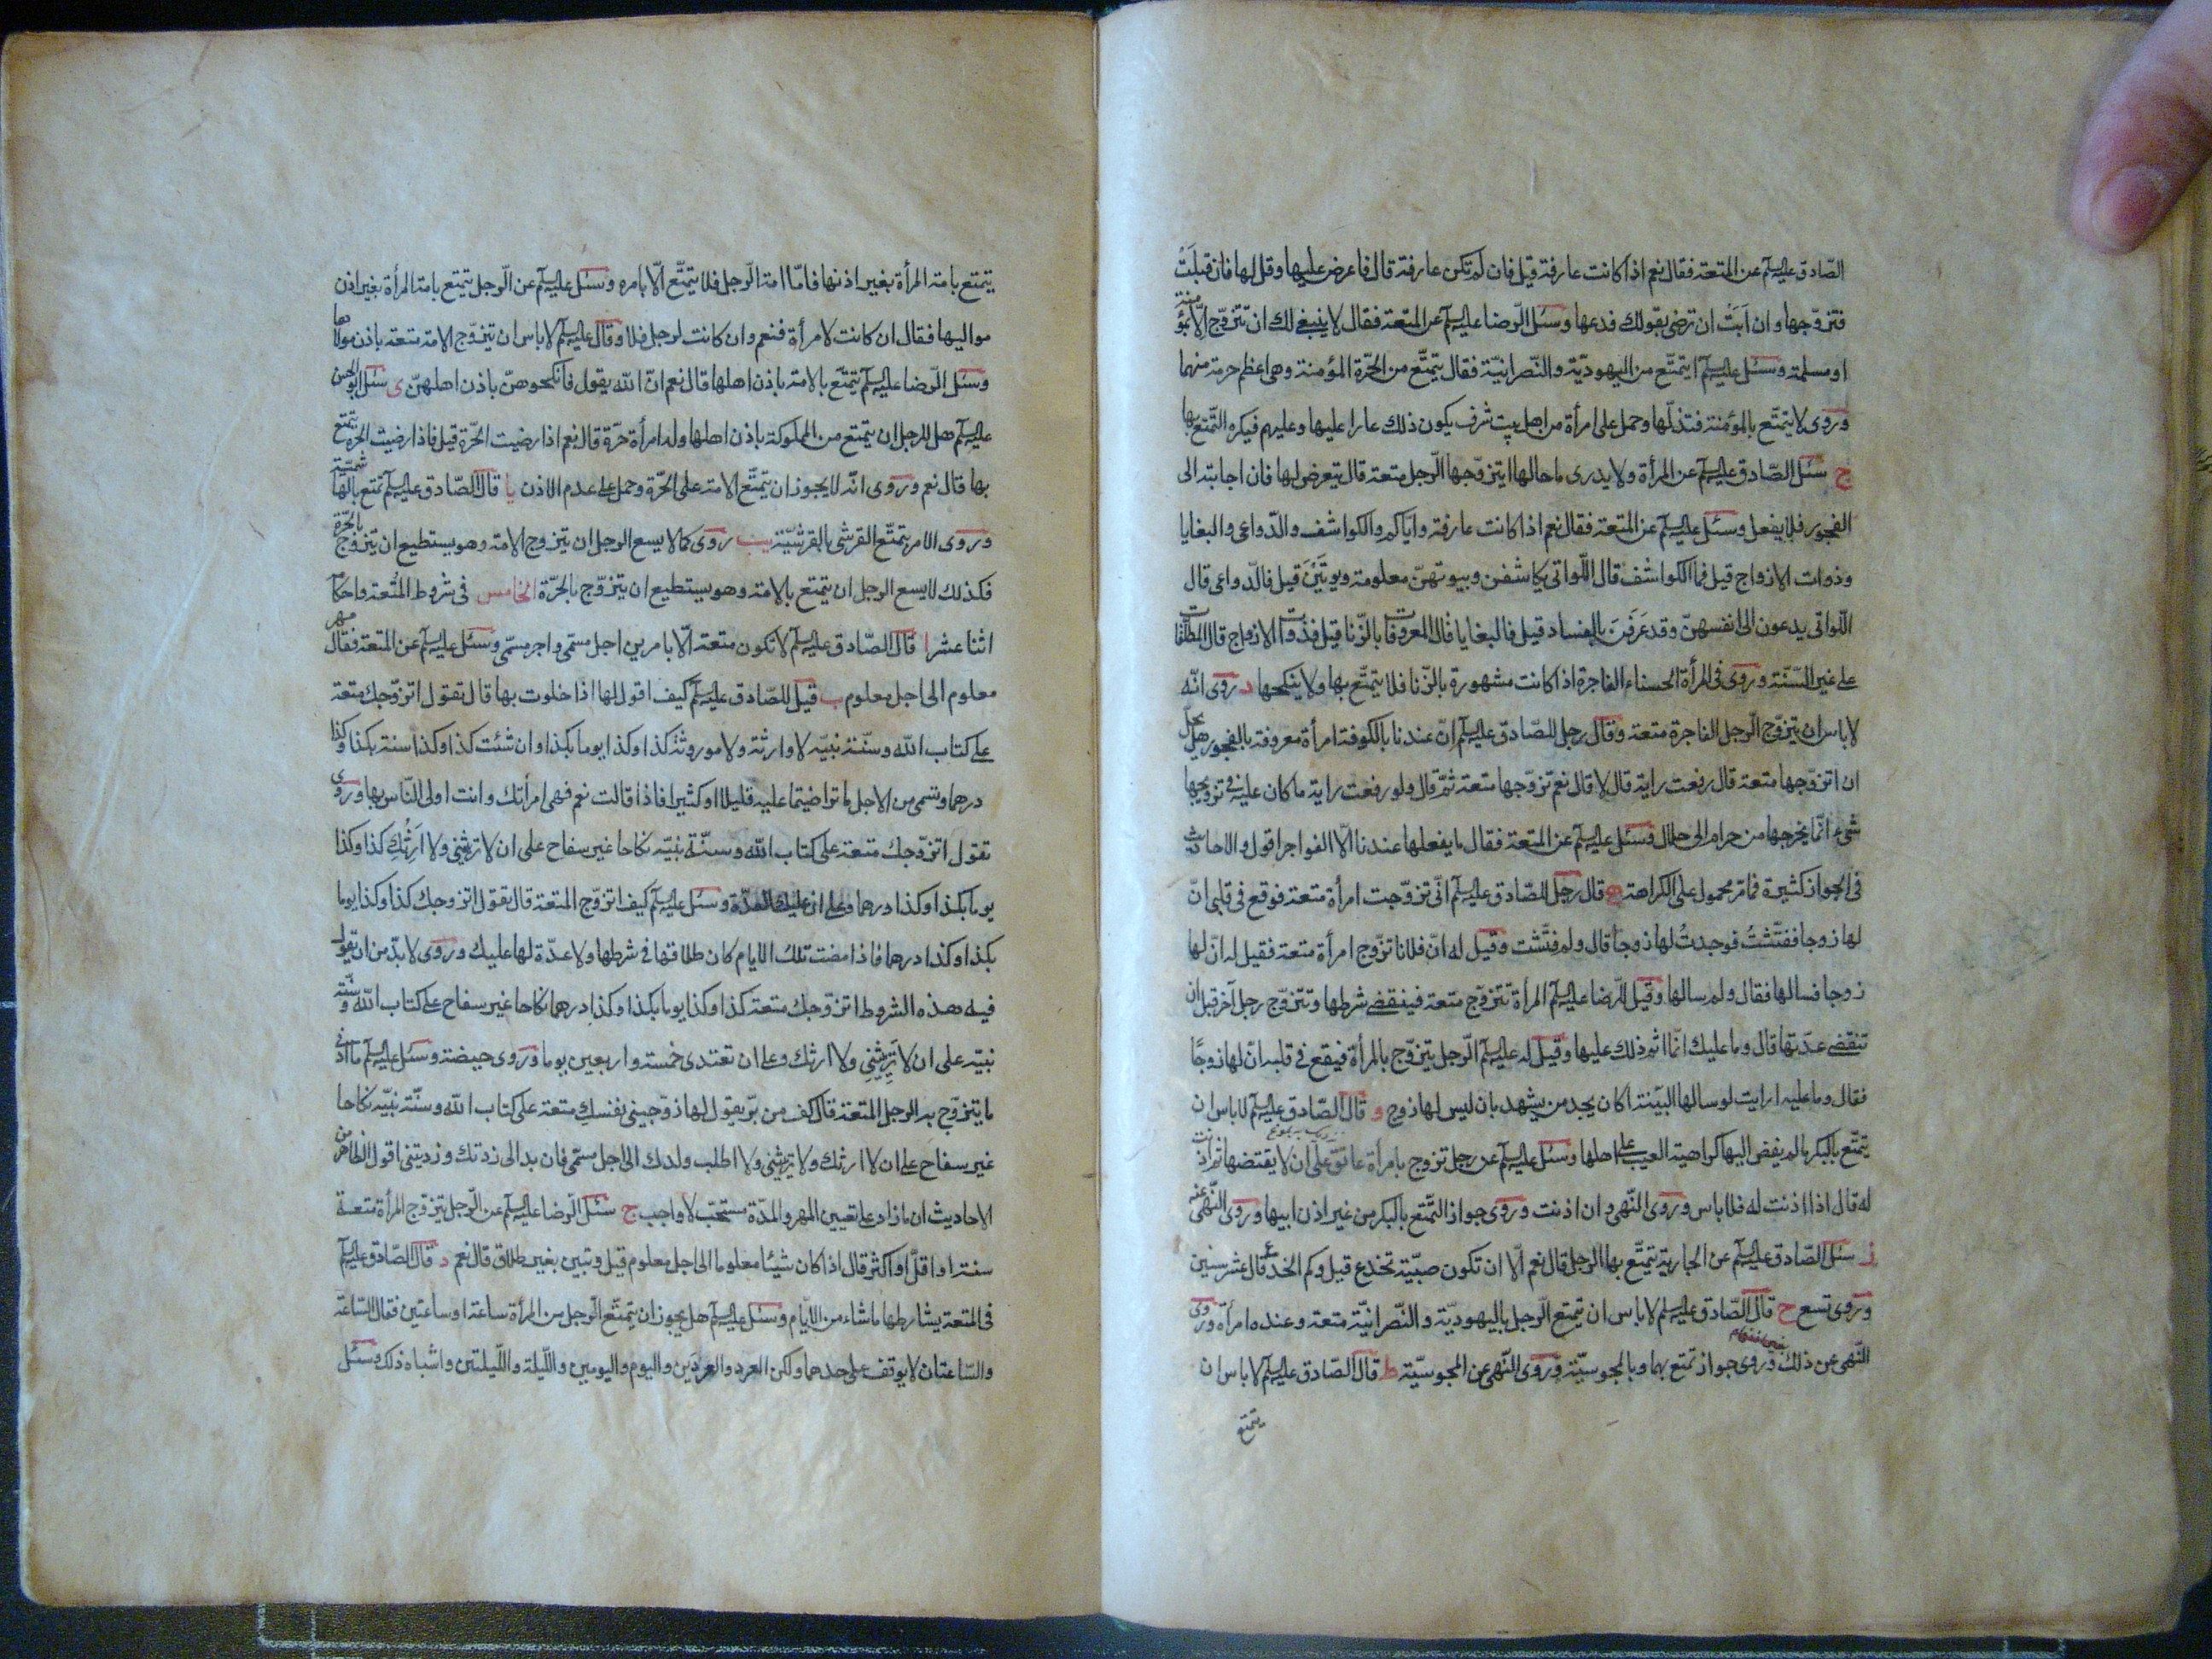 الصّادق عليه السلم عن المتعة فقال نعم اذا كانت عارفة قيل فان لم تكن عارفة قال فاعرض عليها وقل لها فان قبلت
فتزوّجها وان ابت ان ترضى بقولك فدعها وسئل الرّضا عليه السلم عن المتعة فقال لا ينبغي لك ان تتزوّج الّا بمؤمنة
او مسلمة وسئل عليه السلم ايتمتّع من اليهوديّة والنّصرانيّة فقال يتمتّع من الحرّة المؤمنة وهي اعظم حرمة منهما
وروى لا يتمتّع بالمؤمنة فتذلّها وحمل على امرأة من اهل بيت شرف يكون ذلك عارا عليها وعليهم فيكره التّمتّع بها
ج سئل الصّادق عليه السلم عن المرأة ولا يدرى ما حالها ايتزوّجها الرّجل متعة قال يتعرض لها فان اجابته الى
الفجور فلا يفعل وسئل عليه السلم عن المتعة فقال نعم اذا كانت عارفة واياكم والكواشف والدّواعى والبغايا
وذوات الازواج قيل فما الكواشف قال اللّواتى يكاشفن وبيوتهنّ معلومة ويوتَين قيل فالدّواعى قال
اللّواتى يدعون الى انفسهنّ وقد عرفن بالفساد قيل فالبغايا قال المعروفات بالزّنا قيل فذوات الازواج قال المطلّقات
على غير السّنّة وروى فى المرأة الحسناء الفاجرة اذا كانت مشهورة بالزّنا فلا يتمتّع بها ولا ينكحها د روى انّه
لا باس ان يتزوّج الرّجل الفاجرة متعة وقال رجل للصّادق عليه السلم انّ عندنا بالكوفة امرأة معروفة بالفجور هل يحلّ
ان اتزوّجها متعة قال رفعت راية قال لا قال نعم تزوّجها متعة ثمّ قال ولو رفعت راية ما كان عليه فى تزويجها
شىء انّما يخرجها من حرام الى حلال وسئل عليه السلم عن المتعة فقال ما يفعلها عندنا الّا الفواجر اقول والاحاديث
فى الجواز كثيرة فما مرّ محمول على الكراهة ه قال رجل للصّادق عليه السلم انّى تزوّجت امرأة متعة فوقع فى قلبى انّ
لها زوجا ففتّشتُ فوجدتُ لها زوجا قال ولم فتّشت وقيل له انّ فلانا تزوّج امرأة متعة فقيل له انّ لها
زوجا فسالها فقال ولم سالها وقيل للرّضا عليه السلم المرأة تتزوّج متعة فينقضى شرطها وتتزوّج رجل آخر قبل ان
تنقضى عدّتها قال وما عليك انّما اثم ذلك عليها وقيل له عليه السلم الرّجل يتزوّج بالمرأة فيقع فى قلبه انّ لها زوجًا
فقال وما عليه ارايت لو سالها البيّنة اكان يجد من يشهد بان ليس لها زوج و قال الصّادق عليه السلم لا باس ان
يتمتّع بالبكر ما لم يفض اليها كراهية العيب على اهلها وسئل عليه السلم عن رجل تزوج بامرأة عاتق على ان لا يقتضها ثم اذنت
له قال اذا اذنت له فلا باس وروى النّهى وان اذنت وروى جواز التّمتّع بالبكر من غير اذن ابيها وروى النّهى عنه
ز سئل الصّادق عليه السلم عن الجارية يتمتّع بها الرجل قال نعم الّا ان تكون صبيّة تخدع قيل وكم الحد قال عشر سنين
وروى تسع ح قال الصّادق عليه السلم لا باس ان يتمتع الرّجل باليهوديّة والنّصرانيّة متعة وعنده امرأة وروى
النّهى عن ذلك وروى جواز تمتع بهما وبالمجوسيّة وروى النّهى عن المجوسيّة ط قال الصّادق عليه السلم لا باس ان
يتمتع
يتمتع بامة المرأة بغير اذنها فامّا امة الرّجل فلا يتمتّع الّا بامره وسئل عليه السلم عن الرّجل يتمتع بامة المرأة بغير اذن
مواليها فقال ان كانت لامرأة فنعم وان كانت لرجل فلا وقال عليه السلم لا باس ان يتزوّج الامة متعة باذن مولاها
وسئل الرّضا عليه السلم يتمتّع بالامة باذن اهلها قال نعم انّ الله يقول فانكحوهنّ باذن اهلهنّ ى سئل ابو الحسن
عليه السلم هل للرجل ان يتمتع من المملوكة باذن اهلها وله امرأة حرّة قال نعم اذا رضيت الحرّة قيل فاذا رضيت الحرة يتمتع
بها قال نعم وروى انّه لا يجوز ان يتمتّع الامة على الحرّة وحمل على عدم الاذن يا قال الصّادق عليه السلم تمتع بالهاشميّة
وروى الامر يتمتّع القرشى بالقرشيّة يب روى كما لا يسع الرجل ان يتزوج الامة وهو يستطيع ان يتزوج بالحرّة
فكذلك لا يسع الرجل ان يتمتع بالامة وهو يستطيع ان يتزوّج بالحرّة الخامس فى شروط المتعة واحكامها
اثنا عشر ا قال الصّادق عليه السلم لا تكون متعة الّا بامرين اجل مسمّى واجر مسمّى وسئل عليه السلم عن المتعة فقال مهر
معلوم الى اجل معلوم ب قيل للصّادق عليه السلم كيف اقول لها اذا خلوت بها قال تقول اتزوّجك متعة
على كتاب الله وسنّة نبيّه لا وارثة ولا موروثة كذا وكذا يوما بكذا وان شئت كذا وكذا سنة بكذا وكذا
درهما وتسمى من الاجل ما تواضيتما عليه قليلا او كثيرا فاذا قالت نعم فهى امرأتك وانت اولى النّاس بها وروى
تقول اتزوّجك متعة على كتاب الله وسنّة نبيّه نكاحا غير سفاح على ان لا ترثينى ولا ارثكِ كذا وكذا
يوما بكذا وكذا درهما وعلى ان عليك العدّة وسئل عليه السلم كيف اتزوّج المتعة قال يقول اتزوجك كذا وكذا يوما
بكذا وكذا درهما فاذا مضت تلك الايام كان طلاقها فى شرطها ولا عدّة لها عليك وروى لا بدّ من ان يقول
فيه هذه الشروط اتزوجك متعة كذا وكذا يوما بكذا وكذا درهما نكاحا غير سفاح على كتاب الله وسنّة
نبيّه على ان لا تَرِثينِى ولا ارثك وعلى ان تعتدى خمسة واربعين يوما وروى حيضة وسئل عليه السلم ما ادنى
ما يتزوّج به الرجل المتعة قال كف من برّ يقول لها زوّجينى نفسكِ متعة على كتاب الله وسنّة نبيّه نكاحا
غير سفاح على ان لا ارثك ولا ترثينى ولا اطلب ولدك الى اجل مسمّى فان بدا لى زدتك وزديتنى اقول الظاهر من
الاحاديث ان ما زاد على تعيين المهر والمدّة مستحبّ لا واجب ج سئل الرّضا عليه السلم عن الرّجل يتزوّج المرأة متعة
سنة او اقلّ او اكثر قال اذا كان شيئا معلوما الى اجل معلوم قيل وتبين بغير طلاق قال نعم د قال الصّادق عليه السلم
فى المتعة يشارطها ما شاء من الايّام وسئل عليه السلم هل يجوز ان يتمتّع الرّجل من المرأة ساعة او ساعتين فقال السّاعة
والسّاعتان لا يوقف على حدهما ولكن العرد والعردَين واليوم واليومين واللّيلة واللّيلتين واشباه ذلك وسئل